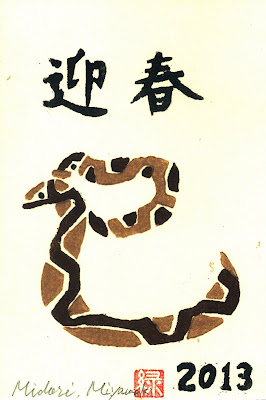 迎春
巳
Midori.
緑
2013